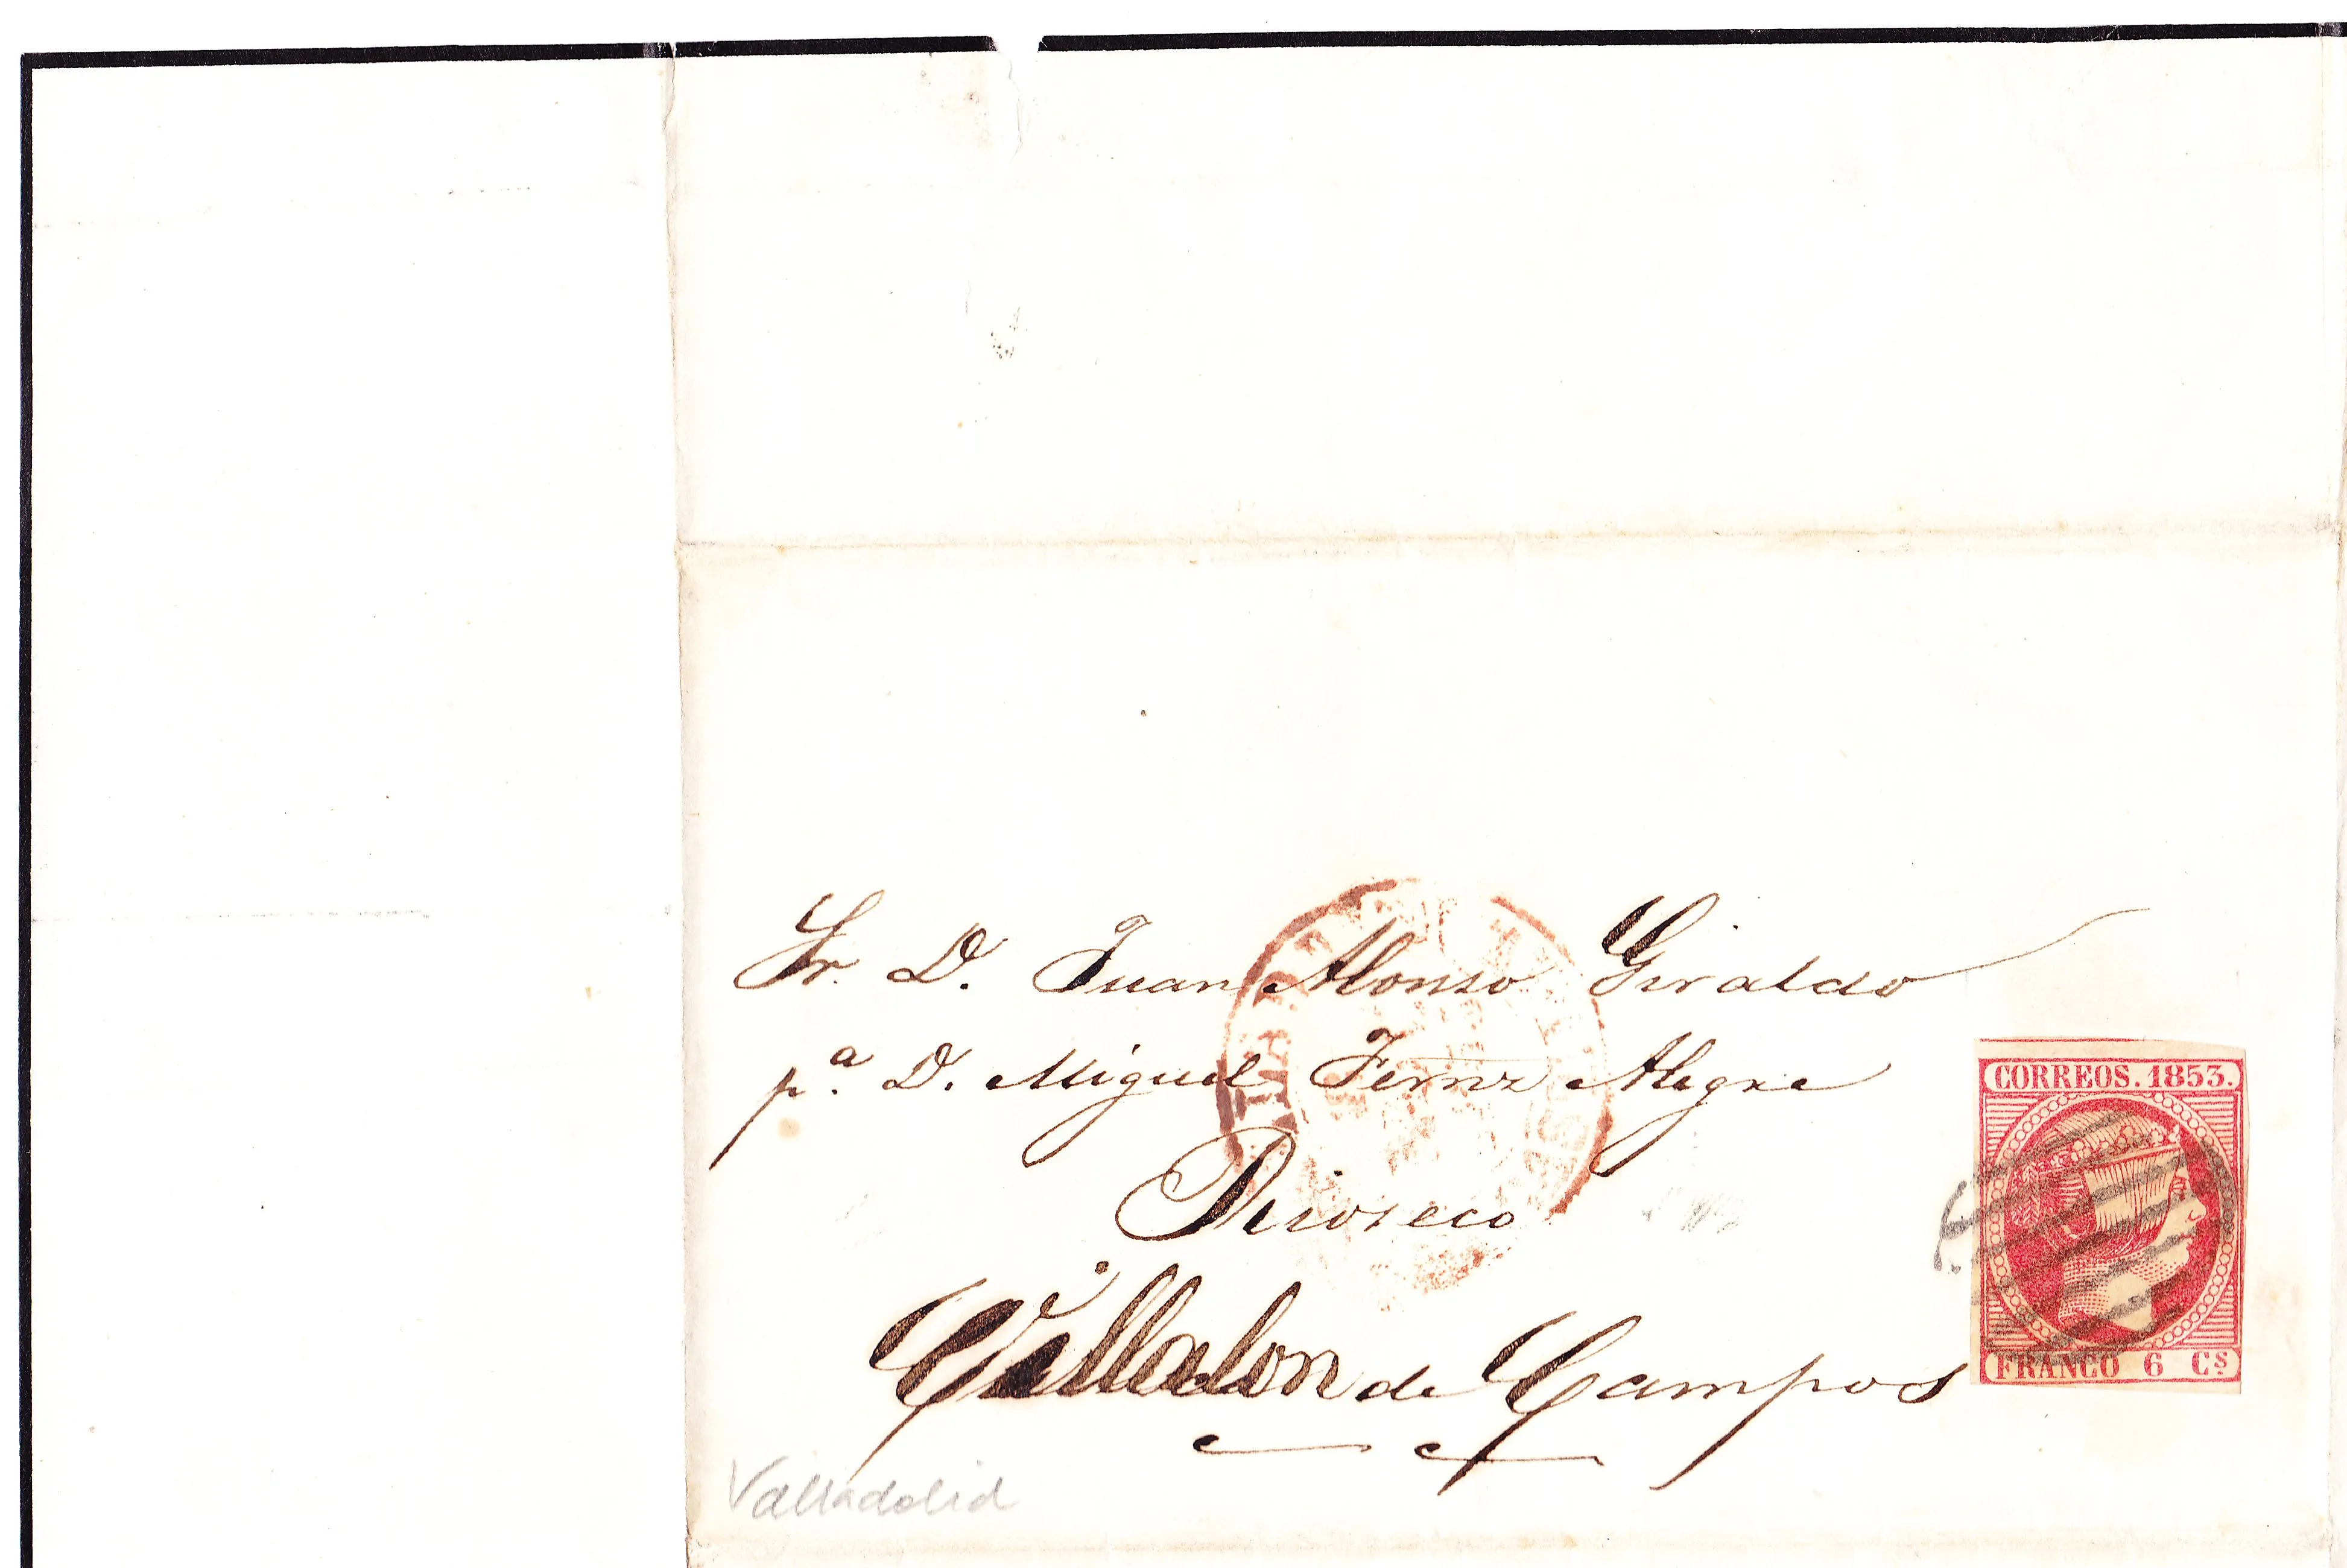 Sr. D. Juan Alonso Giraldo
p.ª D. Miguel Fernz Alegre
Rioseco
Villalon de Campos
Valladolid
CORREOS. 1853.
FRANCO 6 Cs